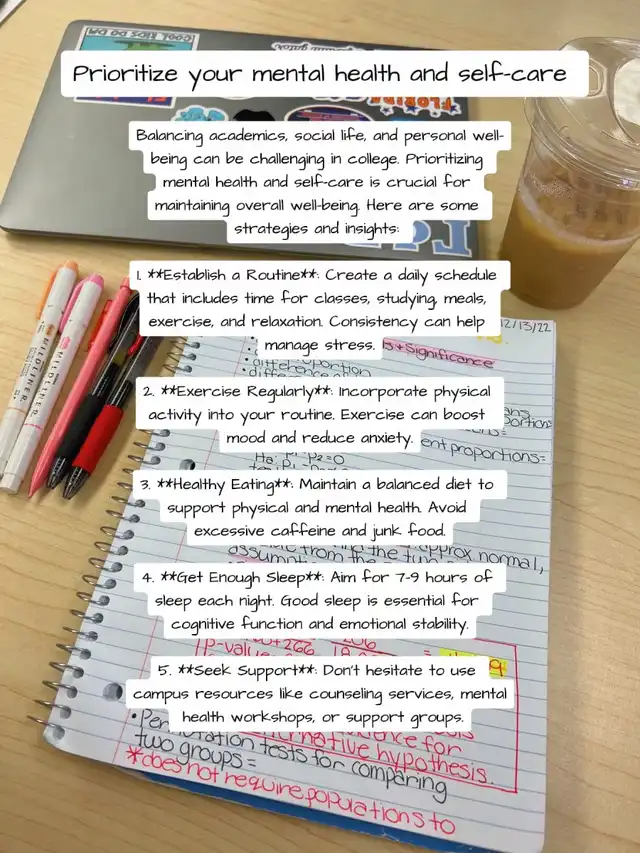 COOL KIDS DO DM
Prioritize your mental health and self-care
FLORIDA
Balancing academics, social life, and personal well-
being can be challenging in college. Prioritizing
mental health and self-care is crucial for
maintaining overall well-being. Here are some
strategies and insights:
1. **Establish a Routine**: Create a daily schedule
that includes time for classes, studying, meals,
exercise, and relaxation. Consistency can help
manage stress.
12/13/22
+Significance
MILDLINER
MILDLINER
2. **Exercise Regularly**: Incorporate physical
activity into your routine. Exercise can boost
mood and reduce anxiety.
proportions=
3. **Healthy Eating**: Maintain a balanced diet to
support physical and mental health. Avoid
excessive caffeine and junk food.
approx normal,
4. **Get Enough Sleep**: Aim for 7-9 hours of
sleep each night. Good sleep is essential for
cognitive function and emotional stability.
5. **Seek Support**: Don't hesitate to use
campus resources like counseling services, mental
health workshops, or support groups.
hypothesis.
tests for comparing
two groups =
*does not require populations to